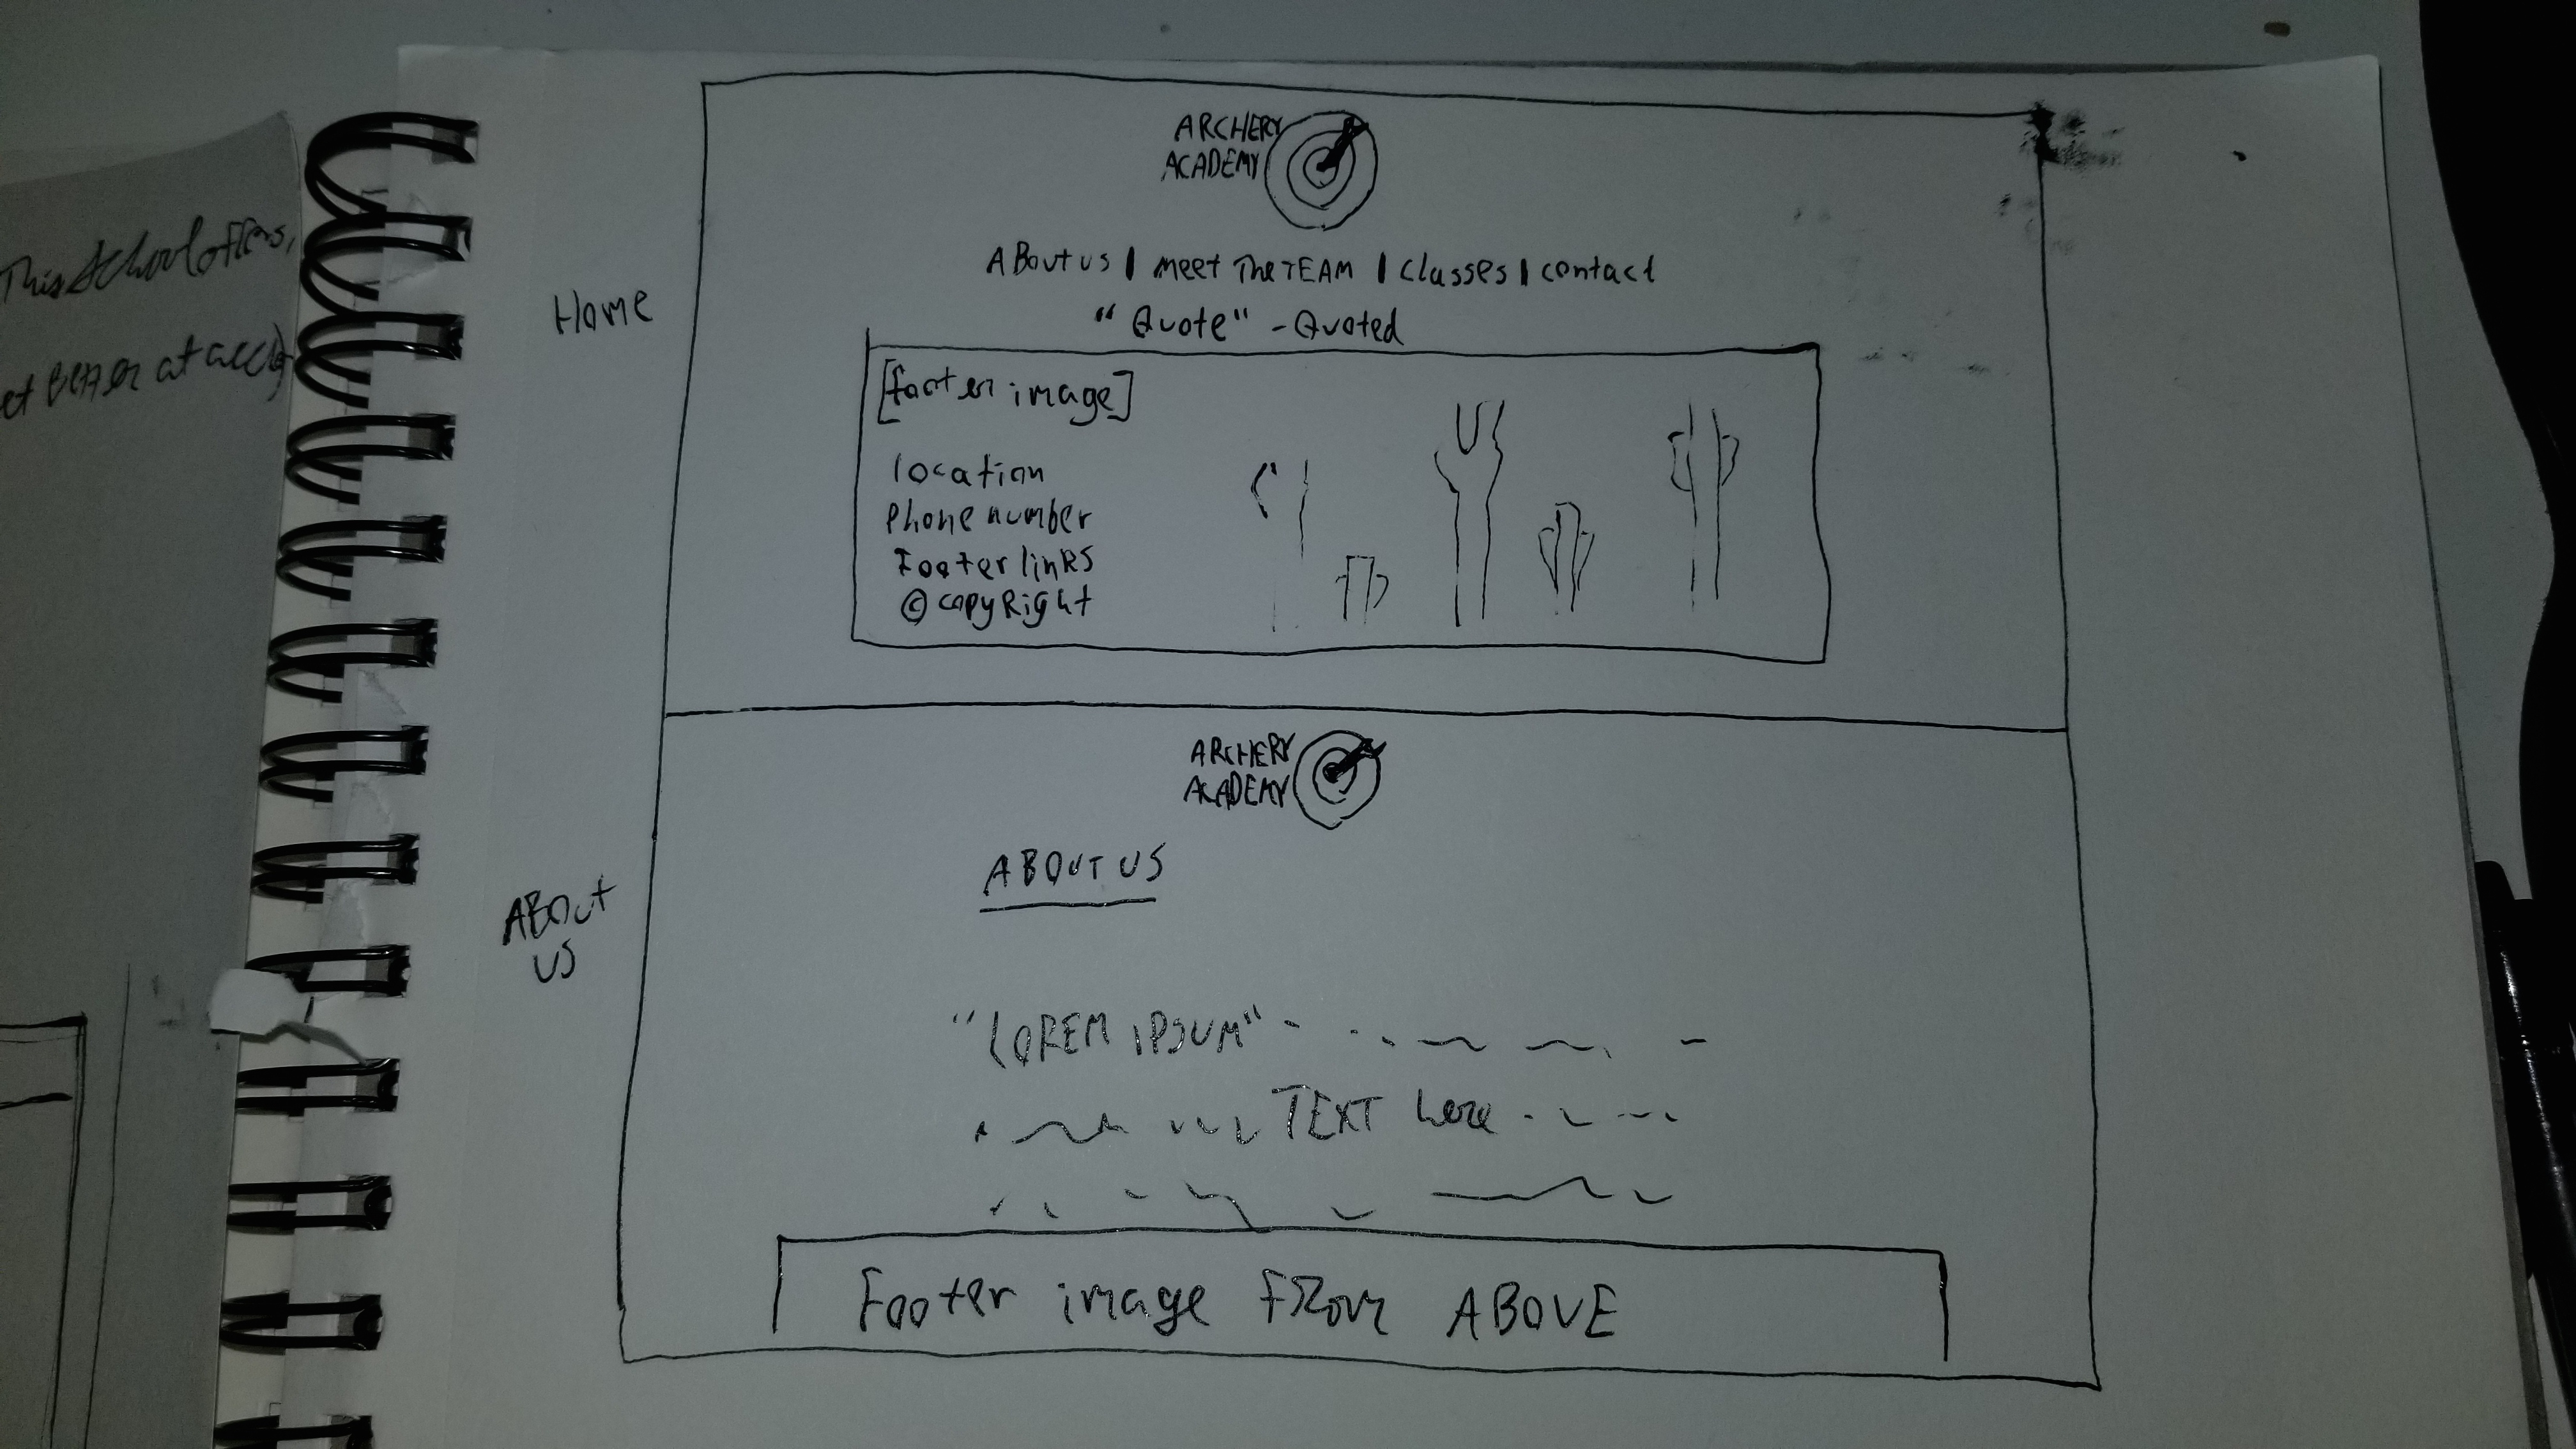 This School offers,
et BETTER at
Home
ARCHERY
ACADEMY
ABout us | meet The TEAM | Classes | contact
"Quote" - Quoted
[footer image]
location
Phone number
Footer links
© copyRight
ABout
US
ARCHERY
ACADEMY
ABOUT US
"LOREM IPSUM"
TEXT here
Footer image from ABOVE